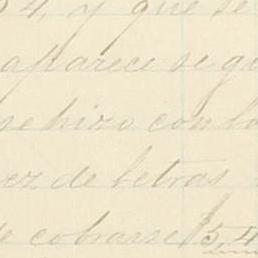 4, y que se
aparece segu
se hizo con lo
vez de letras
e cobrarse $5,4